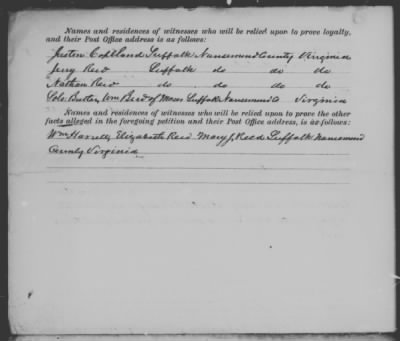 Names and residences of witnesses who will be relied upon to prove loyalty,
and their Post Office address is as follows:
Justin Copeland Suffolk Nansemond County Virginia
Jerry Reid Suffolk do do do
Nathan Reid do do do do
Solo. Butler, Wm Reid of Moses Suffolk Nansemond Co Virginia
Names and residences of witnesses who will be relied upon to prove the other
facts alleged in the foregoing petition and their Post Office address, is as follows:
Wm Harrell, Elizabeth Reid Mary J. Reed Suffolk Nansemond
County Virginia